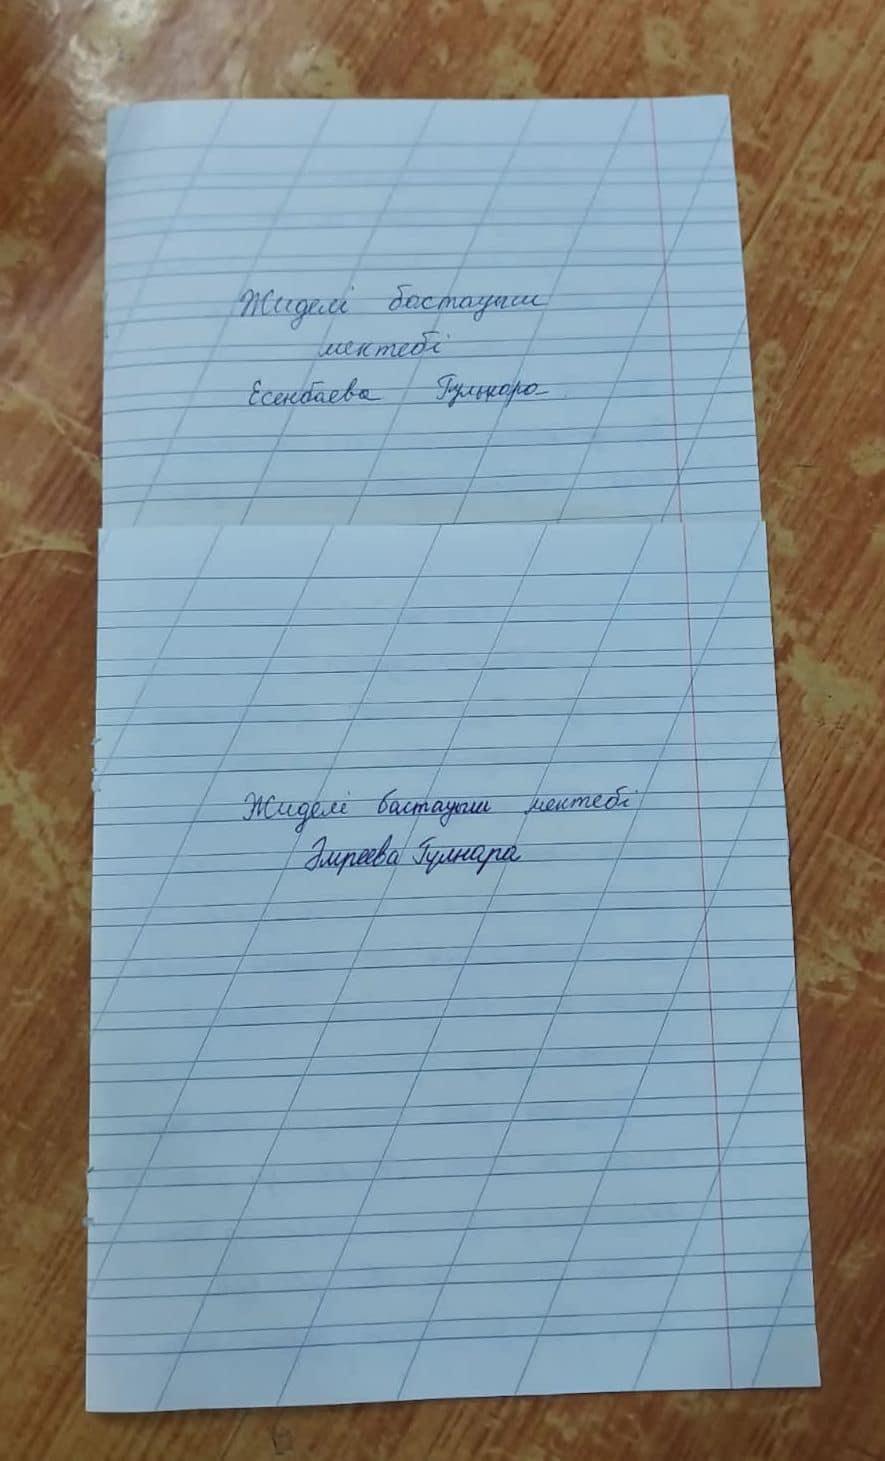 Жиделі бастауыш
мектебі
Есенбаева Гульнара
Жиделі бастауыш мектебі
Әмреева Гулнара